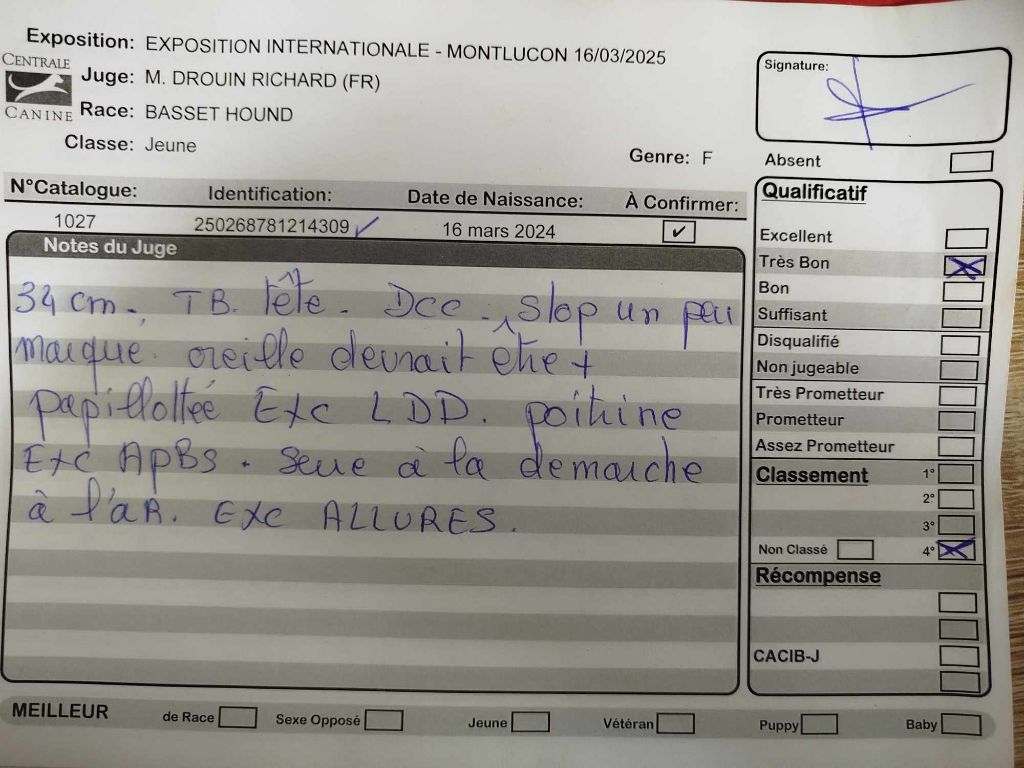 Exposition: EXPOSITION INTERNATIONALE - MONTLUCON 16/03/2025
CENTRALE
CANINE
Juge: M. DROUIN RICHARD (FR)
Race: BASSET HOUND
Classe: Jeune
Genre: F
Signature:
Absent
N°Catalogue: Identification: Date de Naissance: À Confirmer:
1027 250268781214309 ✓ 16 mars 2024 ✔
Notes du Juge
34 cm. TB. tête. Dcc. stop un peu
marqué. oreille devrait etre +
papillottée Exc LDD. poitrine
Exc APBS. Serre à la demarche
à l'AR. EXC ALLURES.
Qualificatif
Excellent
Très Bon
Bon
Suffisant
Disqualifié
Non jugeable
Très Prometteur
Prometteur
Assez Prometteur
Classement 1°
2°
3°
Non Classé 4°
Récompense
CACIB-J
MEILLEUR de Race Sexe Opposé Jeune Vétéran Puppy Baby